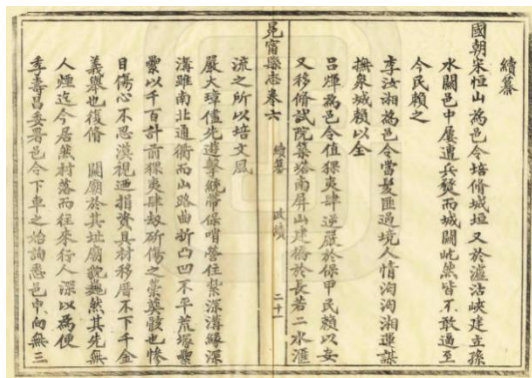 續纂
國朝宋恒山為邑令培脩城垣又於瀘沽峽建立孫
水關邑中屢遭兵燹而城關屹然皆不敢過至
今民賴之
李汝湘為邑令當髮匪過境人情洶洶湘運謀
撫衆城賴以全
呂燡為邑令值猓夷肆逆嚴於保甲民賴以安
又移脩試院築塔南屏山建橋於長若二水滙
冕甯縣志卷六 續纂 政績 二十一
流之所以培文風
嚴大璋儘先遊擊統帶保哨營住紮深溝緣深
溝雖南北通衢而山路曲折凸凹不平荒塚纍
纍以千百計前猓夷肆刼斫傷之藁葬骸也慘
目傷心不思漠視迺捐資具材移厝不下千余
義舉也復脩 關廟於其址廟貌巍然其先無
人煙迄今居然村落而往來行人深以為便
季壽昌委署邑令下車之始詢悉邑中向無三